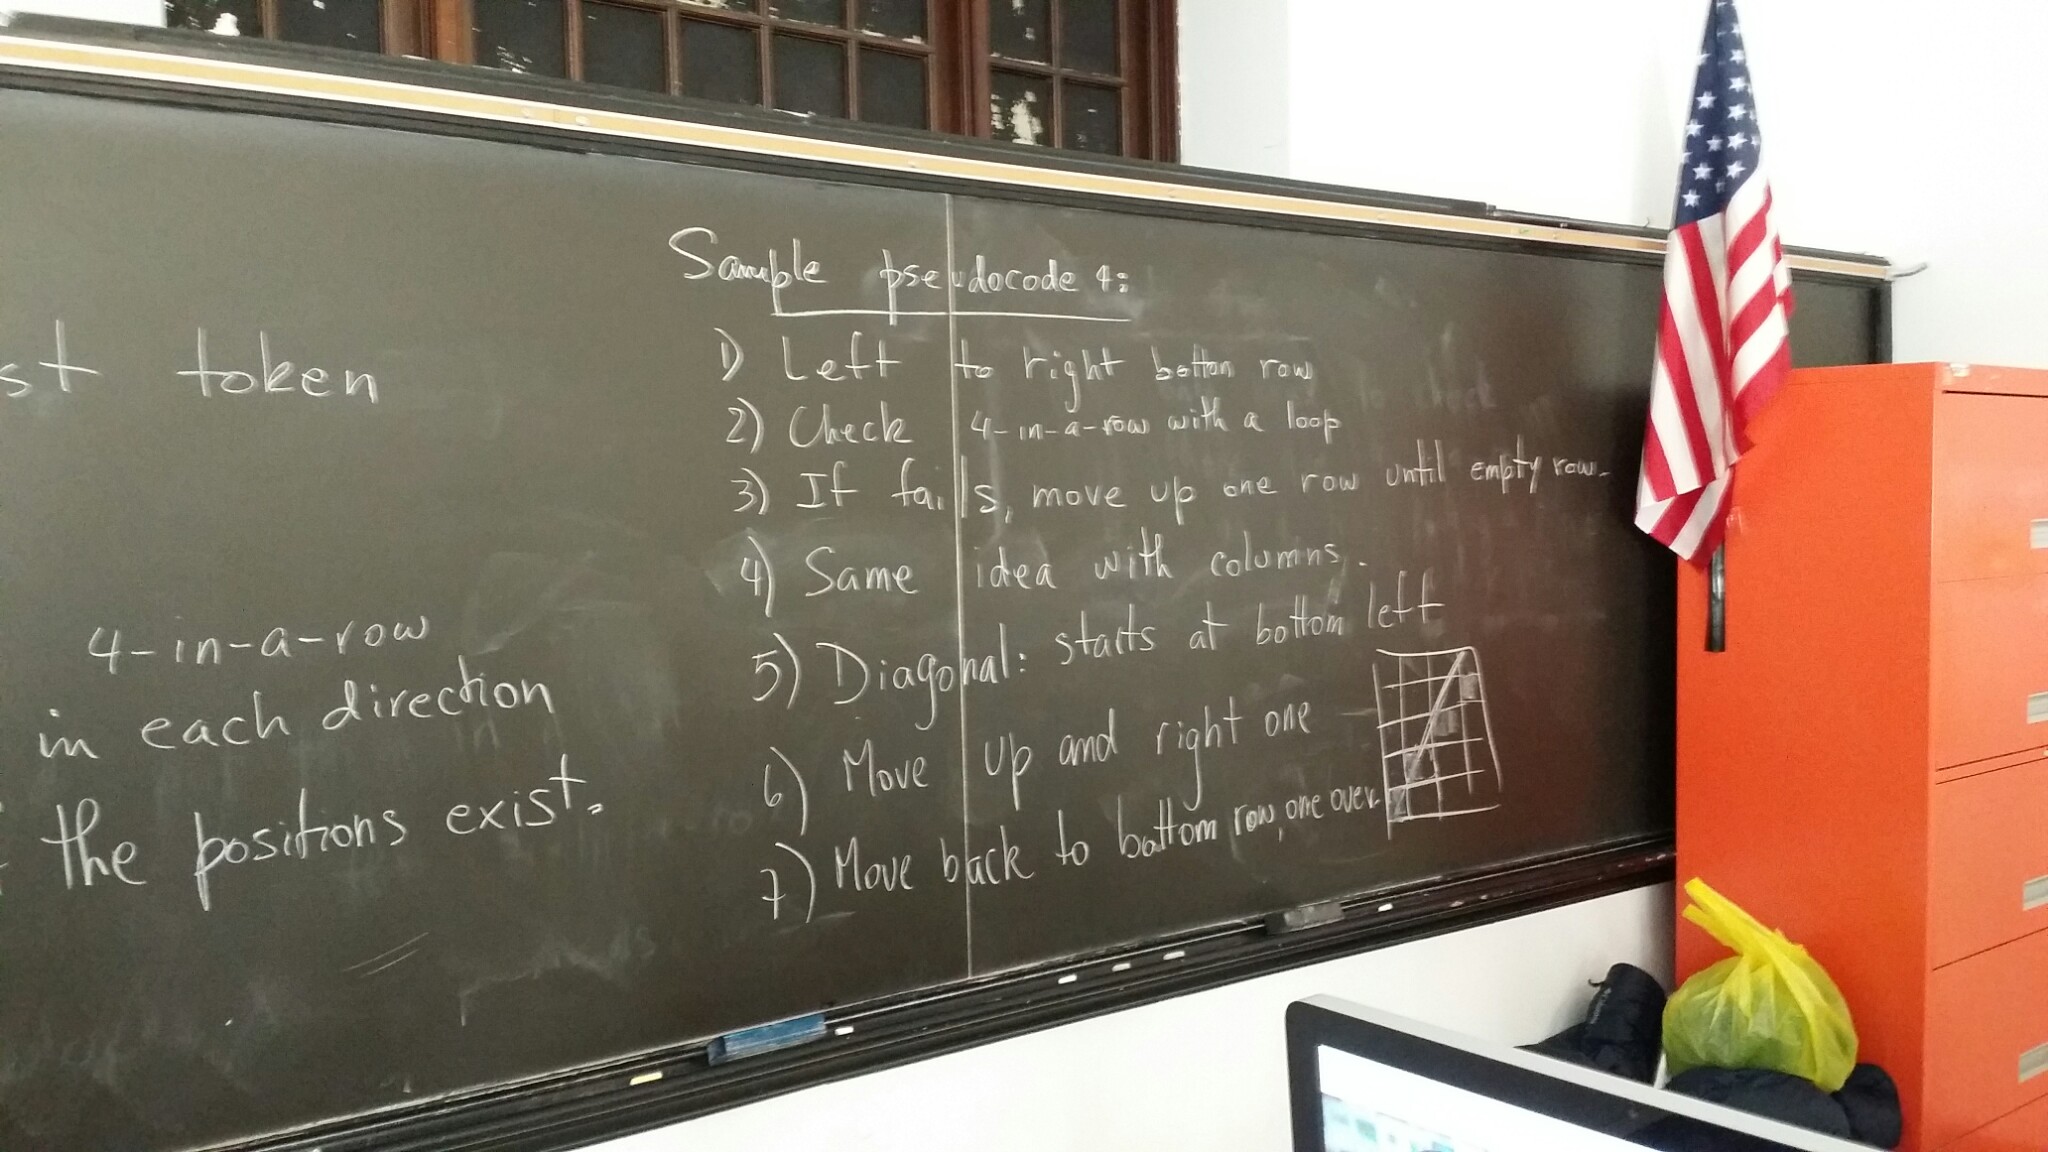 st token
4-in-a-row
in each direction
the positions exist.
Sample pseudocode 4:
1) Left to right bottom row
2) Check 4-in-a-row with a loop
3) If fails, move up one row until empty row.
4) Same idea with columns.
5) Diagonal: starts at bottom left
6) Move up and right one
7) Move back to bottom row, one over.